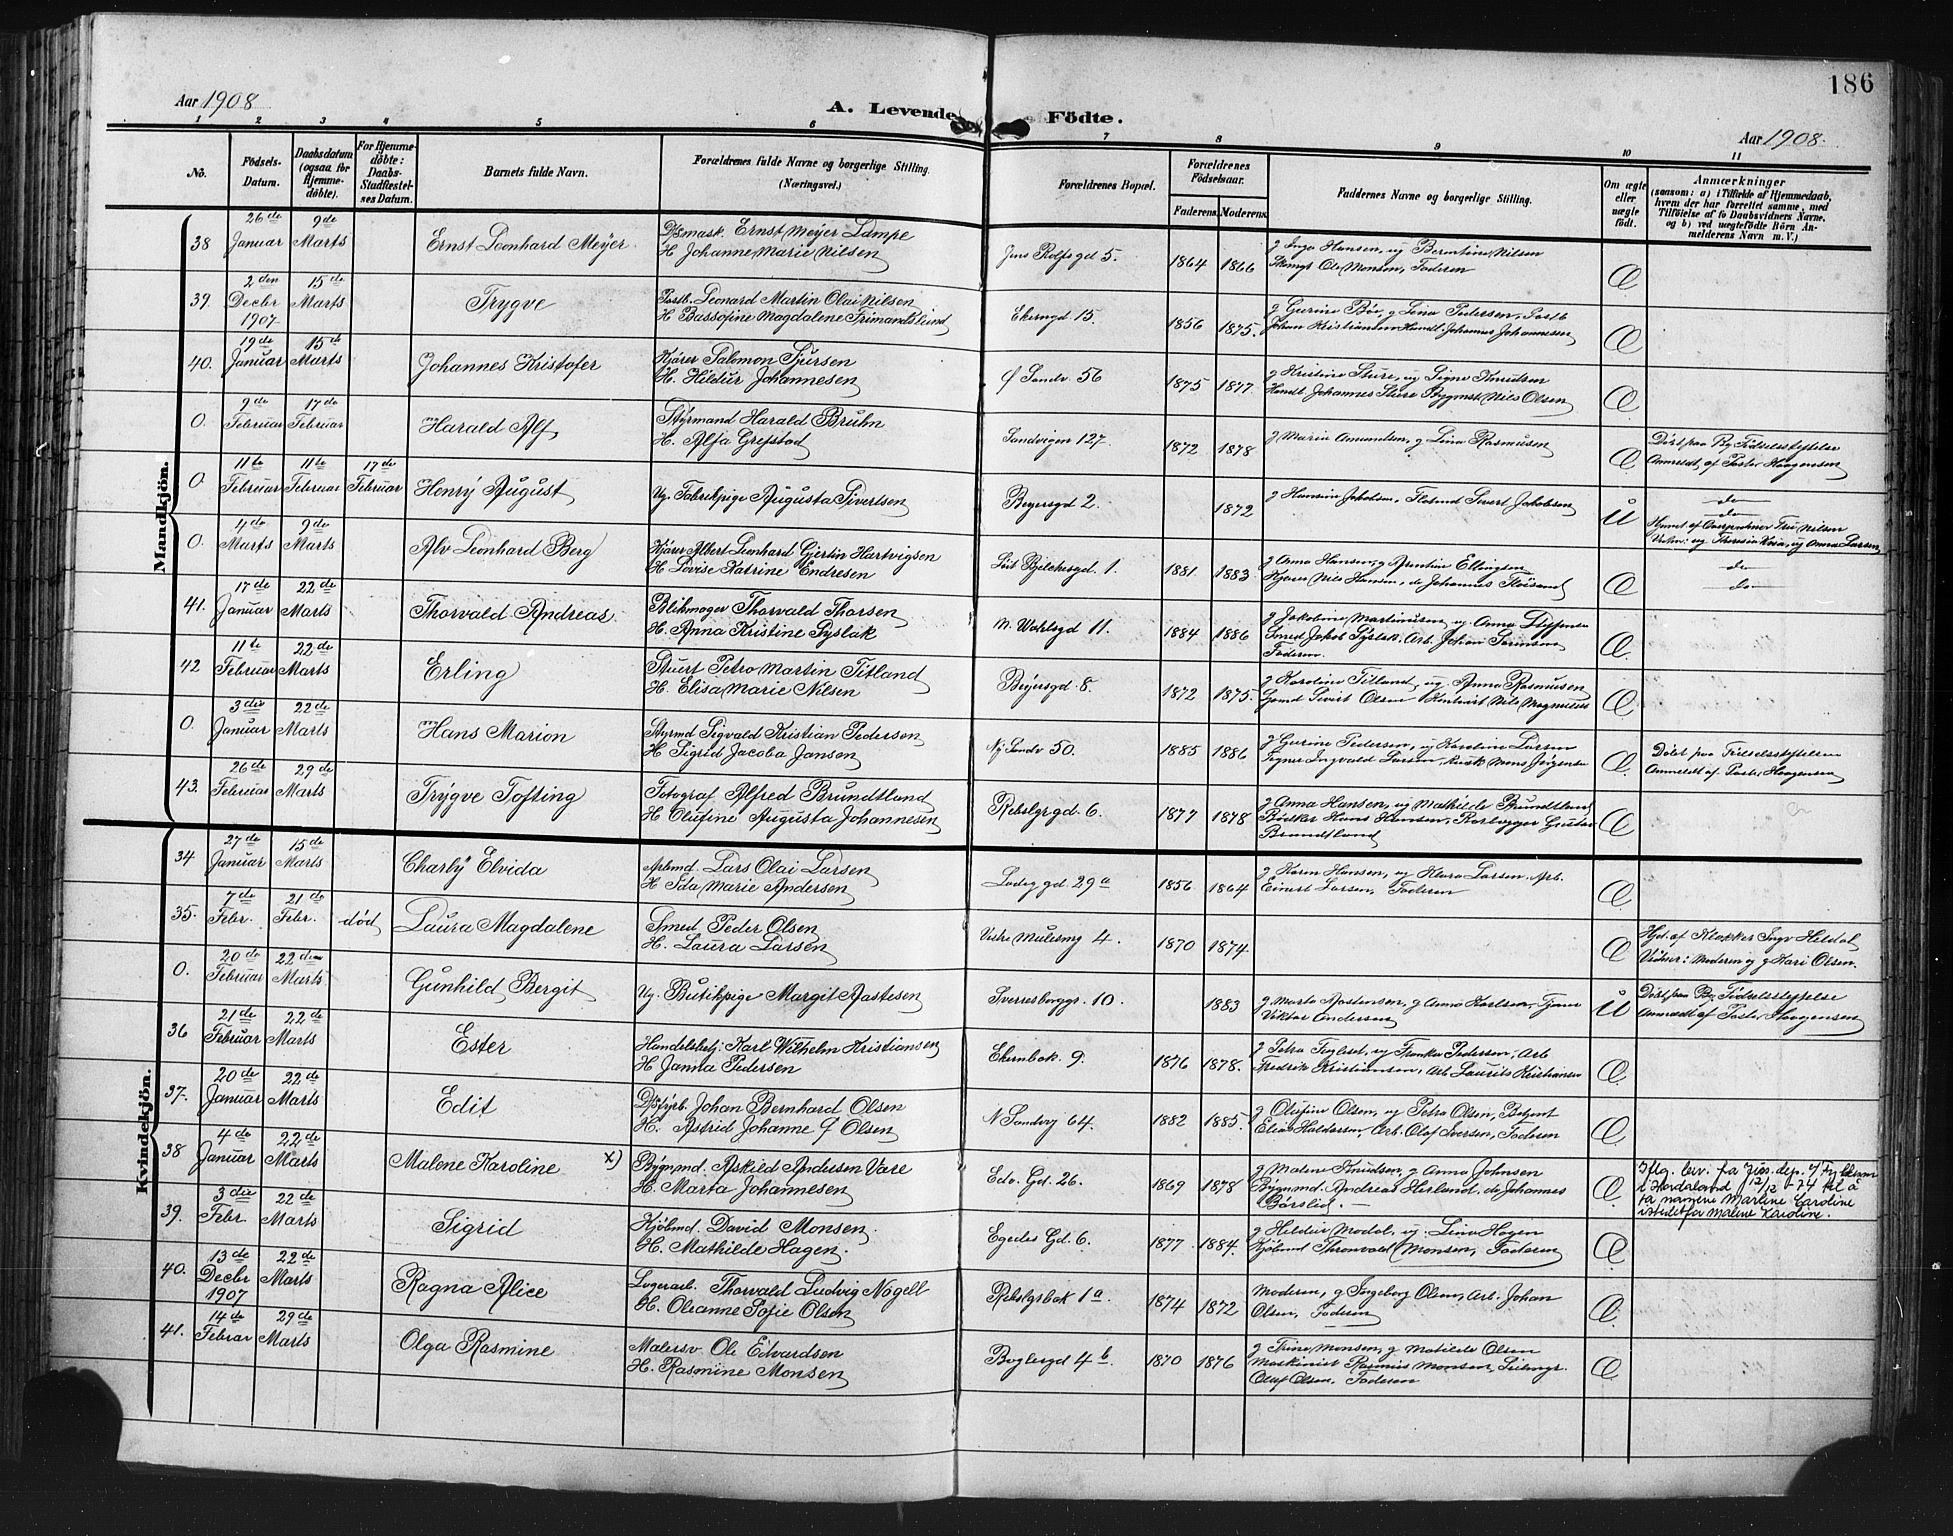 186
Aar 1908
A. Levende Födte.
Aar 1908.
1 2 3 4 5 6 7 8 9 10 11
No.
Födsels-Datum.
Daabsdatum (ogsaa for Hjemmedöbte).
For Hjemmedöbte: Daabs-Stadfæstelses Datum.
Barnets fulde Navn.
Forældrenes fulde Navne og borgerlige Stilling. (Næringsvei.)
Forældrenes Bopæl.
Forældrenes Födselsaar.
Faderens. Moderens.
Faddernes Navne og borgerlige Stilling.
Om ægte eller uægte födt.
Anmærkninger
(saasom: a) i Tilfælde af Hjemmedaab, hvem der har forrettet samme, med Tilföielse af to Daabsvidners Navne, og b) ved uægtefödte Börn Anmelderens Navn m. V.)
Mandkjön.
38 26de Januar 9de Marts Ernst Leonhard Meyer
Ernst Meyer Lampe
H. Johanne Marie Nilsen
Jens Rolfsgd 5. 1864 1866
g Inga Hansen, ug Berntine Nilsen
Ole Monsen, Faderen
Æ
39. 2den Decbr 1907 15de Marts Trygve
Leonard Martin Olai Nilsen
H Bassofine Magdalene Frimandslund
Ekerngd 15. 1856 1875.
Johan Kristiansen Handl Johannes Johannessen
Æ
40. 19de Januar 15de Marts Johannes Kristofer
Kjører Salomon Sjursen
H. Hildur Johannesen
Sandv. 56 1875 1877
g Kristine Sture, ug Signe Knudsen
Handl. Johannes Sture Bygmst Nils Olsen
Æ
0. 9de Februar 17de Februar Harald Alf
Styrmand Harald Bruhn
H. Alfa Grefstad
Sandvigen 127. 1872 1878
g Maria Amundsen, g Lina Rasmusen
Æ
Døbt paa By. Fødselsstiftelse
Anmeldt af Pastor Haagensen
0 11te Februar 11te Februar 17de Februar Henry August
Ug. Fabrikpige Augusta Sivertsen
Beyersgd 2. 1872
g Hansine Jakobsen, Sivert Jakobsen
U
do
do
0. 4de Marts 9de Marts Alv Leonhard Berg
Kjører Albert Leonhard Gjertin Hartvigsen
H Lovise Katrine Endresen
Bjelchesgd. 1. 1881 1883
g Anna Hansen, g Arentine Ellingsen
Kjører Nils Hansen, do Johannes
Æ
do
do
41. 17de Januar 22de Marts Thorvald Andreas
Blikmager Thorvald Thorsen
H. Anna Kristine Pyslak
M. Wahlsgd 11. 1884 1886
g Jakobine Martinusen ug. Anna
Smed Jakob Pyslak, Arb. Johan Sørensen
Faderen.
Æ
42 11te Februar 22de Marts Erling
Stuert Petro Martin Titland
H. Elisa Marie Nilsen
Beyersgd. 8. 1872 1875.
g Karoline Titland, ug Anna Rasmusen
Sivert Olsen Nils Magnus
Æ
0. 3die Januar 22de Marts Hans Marion
Styrmd Sigvald Kristian Pedersen
H Sigrid Jacoba Jansen
Ny Sandv 50. 1885 1886
g Gurine Pedersen, ug Karoline Larsen
Ingvald Larsen, Mons Jørgensen
Æ
Døbt paa Fødselsstiftelsen
Anmeldt af Pastor Haagensen
43. 26de Februar 29de Marts Trygve Tofting
Fotograf Alfred Brundtland
H Olufine Augusta Johannesen
Rebslgrgd. 6. 1877 1878
g Anna Hansen, ug Mathilde Brundtland
Bødker Hans Hansen, Rørlægger Gustav
Brundtland
Æ
Kvindekjön.
34 27de Januar 15de Marts Charly Elvida
Arbmd. Lars Olai Larsen
H Ida Marie Andersen
Ladegd. 29a 1856 1864
g Karen Hansen, ug Klara Larsen. Arb.
Einert Larsen, Faderen
Æ
35. 7de Febr. 21de Febr. død Laura Magdalene
Smed Peder Olsen
H. Laura Larsen
Vestre Mulesmg 4. 1870 1874.
Æ
Hjd. af Klokker Ingv Heldal
Vidner: Moderen og g Kari Olsen.
0. 20de Februar 22den Marts Gunhild Bergit
Ug. Butikpige Margit Aastesen
Sverresborggt. 10. 1883
g Marta Aastensen, g Anna Karlsen,
Viktor Andersen
U
Døbt paa By. Fødselsstiftelse
Anmeldt af Pastor Haagensen
36 21de Februar 22de Marts Ester
Handelsbetj. Karl Wilhelm Kristiansen
H Janna Pedersen
Ekernbak. 9. 1876 1878.
g Petra Teglset, ug Franka Pedersen, Arb
Fredrik Kristiansen, Arb. Laurits Kristiansen
Æ
37. 20de Januar 22de Marts Edit
Johan Bernhard Olsen
H. Astrid Johanne f Olsen
N Sandvg 64. 1882 1885.
g Olufine Olsen, ug Petra Olsen,
Elias Haldorsen, Arb. Olaf Iversen, Faderen
Æ
38 4de Januar 22de Marts Malene Karoline x)
Bygnmd. Askild Andersen Vare
H. Marta Johannesen
Edv. Gd. 26. 1869 1878
g Malene Knudsen, g Anna Johnsen
Bygnmd. Andreas Herland, do Johannes
Børslid.
Æ
Iflg. brev. fra Jus.dep. / Fylkesm
i Hordaland 12/12 -74 til å
ta navnene Marlene Caroline
istedetfor Malene Karoline.
39. 3die Febr. 22de Marts Sigrid
Kjølmd. David Monsen.
H. Mathilde Hagen.
Egedes Gd. 6. 1877 1884.
g Hildur Modal, ug. Lina Hagen
Thronvald Monsen, Faderen
Æ
40. 13de Decbr 1907 22de Marts Ragna Alice
Lagerarb. Thorvald Ludvig Nøgell
H. Oleanne Sofie Olsen
Rebslgrbak 1a. 1874 1872
Moderen, g Ingeborg Olsen, Arb. Johan
Olsen, Faderen
Æ
41. 14de Februar 29de Marts Olga Rasmine
Malersv. Ole Edvardsen
H. Rasmine Monsen
Boglergd 4b. 1870 1876
g Trine Monsen, g Matilde Olsen
Maskinist Rasmus Monsen,
Oluf Olsen, Faderen
Æ